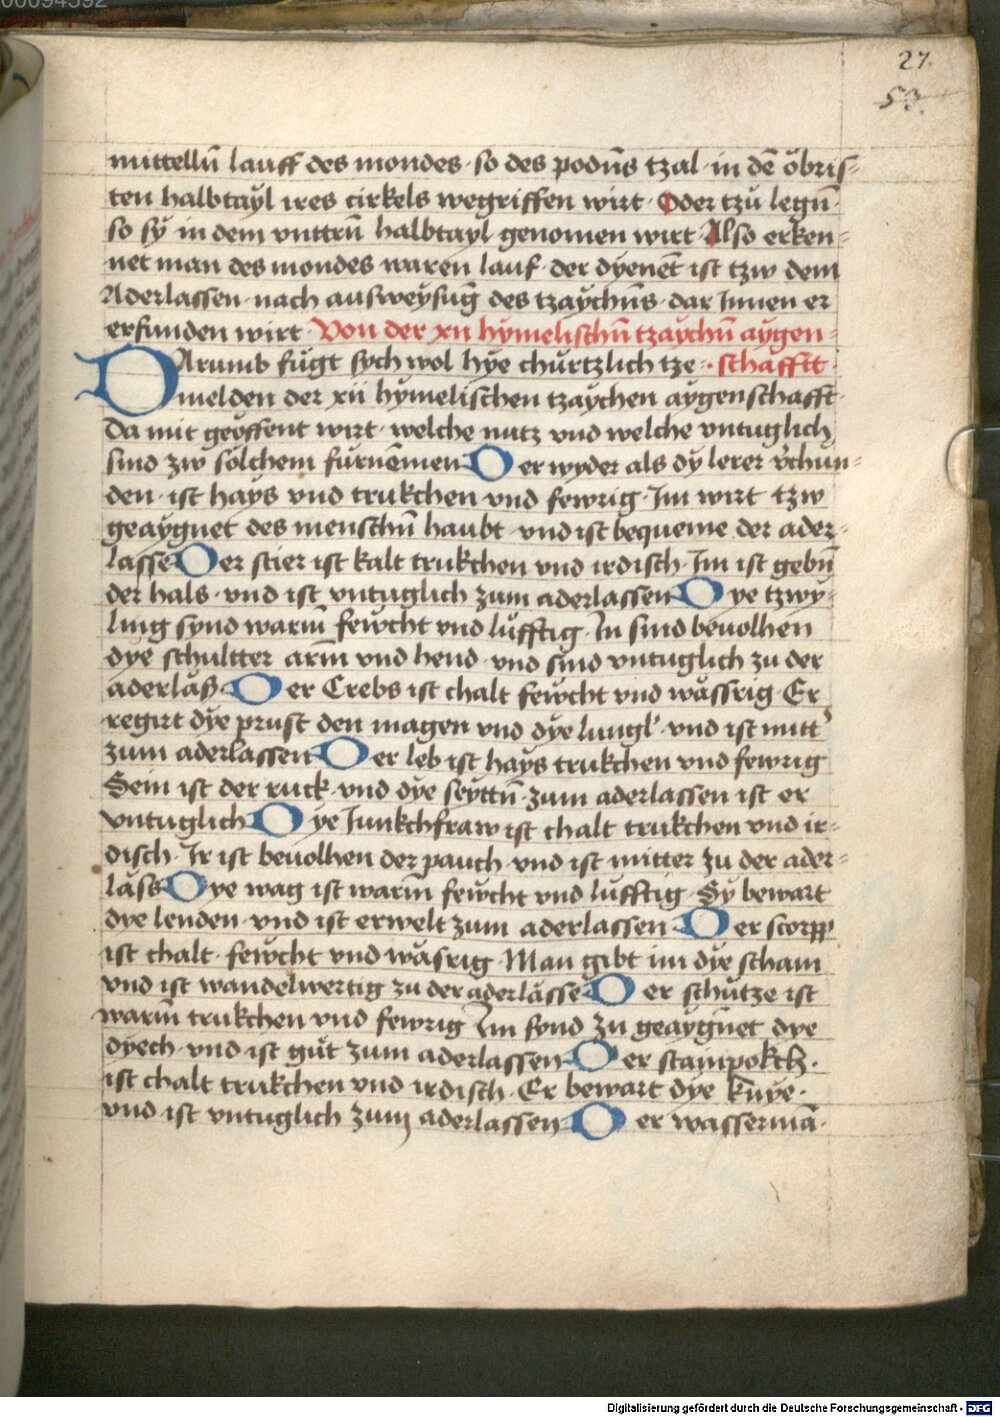 00094592
27.
53.
mittellū lauff des mondes · so des podēs tzal · in dē öbris-
ten halbtayl ires cirkels wegriffen wirt · Oder tzu legn̄ ·
so sy in dem vnttrn̄ halbtayl genomen wirt · Also erken-
net man des mondes waren lauf · der dyenet̄ ist tzw dem
Aderlassen · nach ausweysuḡ des tzaychn̄s · dar Innen er
erfunden wirt · Von der xii hymelischn̄ tzaychn̄ aygen-
DArumb fügt sych wol hye churtzlich tze · · schafft ·
melden der xii hymelischen tzaychen aygenschafft ·
Da mit geöffent wirt · welche nutz vnd welche vntuglich
sind zw sölchem furnēmen Der wyder als dy lerer v̉chun-
den · ist hays vnd trukchen vnd fewrig · Im wirt tzw
geaygnet des menschn̄ haubt · vnd ist bequeme der ader-
lasse Der stier ist kalt trukchen vnd irdisch · Im ist gebn̄
der hals · vnd ist vntuglich zum aderlassen Dye tzwy-
ling synd warm̄ fewcht vnd lüfftig · In sind beuolhen
dye schultter arm̄ vnd hend · vnd sind vntuglich zu der
aderläß Der Crebs ist chalt fewcht vnd wässrig · Er
regirt dye prust den magen vnd dye lungl · vnd ist mitt̉
zum aderlassen Der leb ist hays trukchen vnd fewrig
Sein ist der ruck · vnd dye seyttn̄ · zum aderlassen ist er
vntuglich Dye Junkchfraw ist chalt trukchen vnd ir-
disch · Ir ist beuolhen der pauch · vnd ist mitter zu der ader-
läss Dye wag ist warm̄ fewcht vnd lüfftig · Sy bewart
dye lenden · vnd ist erwelt zum aderlassen · Der scorpp
ist chalt · fewcht vnd wäsrig · Man gibt im dye scham
vnd ist wandelwertig zu der aderlässe Der schutze ist
warm̄ trukchen vnd fewrig Im synd zu geaygn̄et dye
dyech · vnd ist güt zum aderlassen Der stampokch ·
ist chalt trukchen vnd irdisch · Er bewart dye knye ·
vnd ist vntuglich zum aderlassen Der wassermā ·
Digitalisierung gefördert durch die Deutsche Forschungsgemeinschaft - DFG